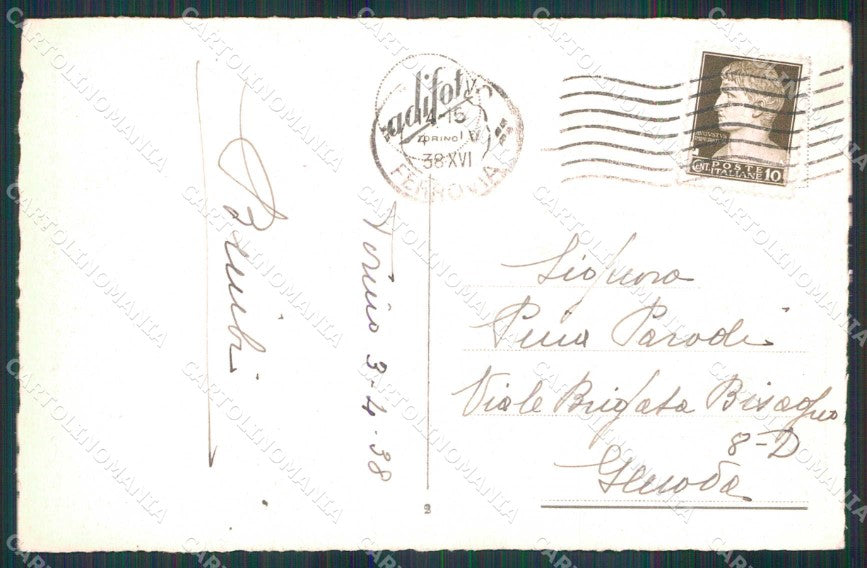 Torino 3-4-38
adifoto
4-15
TORINO
38 XVI
FERROVIA
POSTE
CENT. ITALIANE 10
Signora
Pina Parodi
Viale Brigata Bisagno
8-D
Genova
2
CARTOLINOMANIA